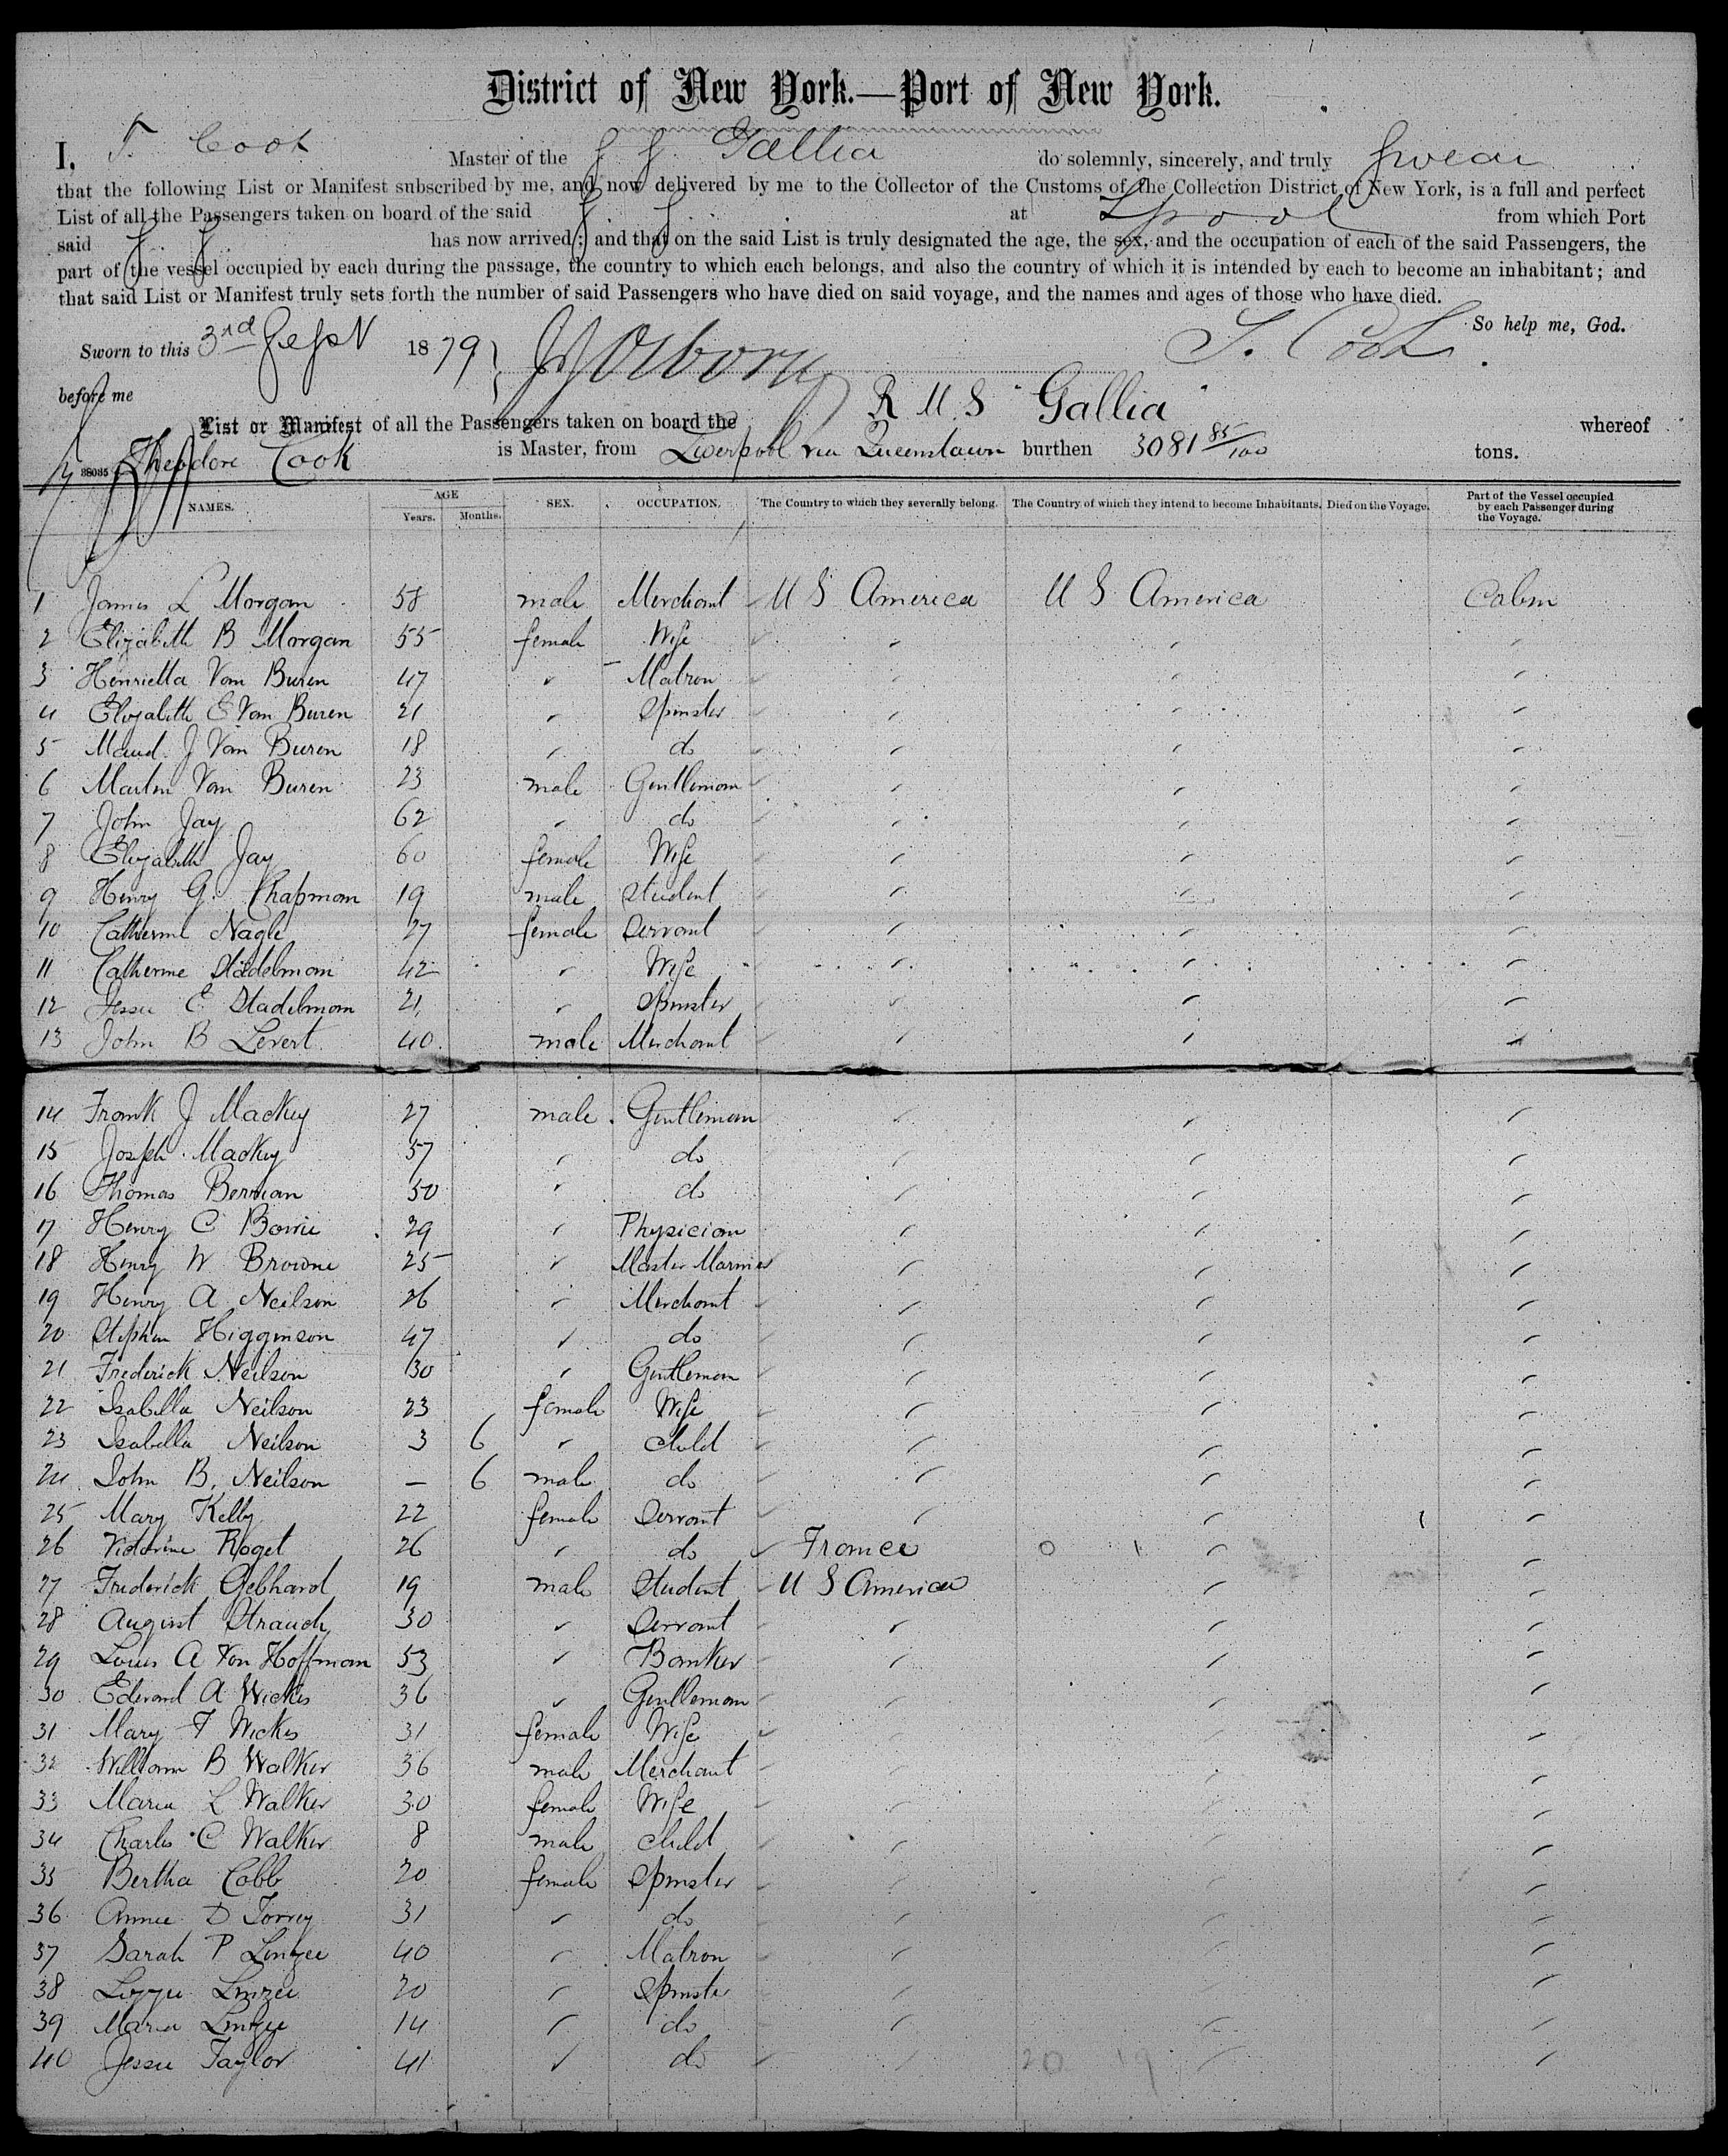 District of New York.—Port of New York.
I, T. Cook Master of the S S Gallia do solemnly, sincerely, and truly swear
that the following List or Manifest subscribed by me, and now delivered by me to the Collector of the Customs of the Collection District of New York, is a full and perfect
List of all the Passengers taken on board of the said S. S. at Lpool from which Port
said S. S. has now arrived; and that on the said List is truly designated the age, the sex, and the occupation of each of the said Passengers, the
part of the vessel occupied by each during the passage, the country to which each belongs, and also the country of which it is intended by each to become an inhabitant; and
that said List or Manifest truly sets forth the number of said Passengers who have died on said voyage, and the names and ages of those who have died.
So help me, God.
Sworn to this 3rd Sept 1879 Osborn T. Cook
before me
List or Manifest of all the Passengers taken on board the R M S Gallia whereof
38035 Theodore Cook is Master, from Liverpool via Queenstown burthen 3081 85/100 tons.
NAMES. AGE Years. Months. SEX. OCCUPATION. The Country to which they severally belong. The Country of which they intend to become Inhabitants. Died on the Voyage. Part of the Vessel occupied by each Passenger during the Voyage.
1 James L Morgan 58 male Merchant U S America U S America Cabin
2 Elizabeth B Morgan 55 female Wife
3 Henrietta Van Buren 47 " Matron
4 Elizabeth E Van Buren 21 " Spinster
5 Maud J Van Buren 18 " do
6 Martin Van Buren 23 male Gentleman
7 John Jay 62 " do
8 Elizabeth Jay 60 female Wife
9 Henry G. Chapman 19 male Student
10 Catherine Nagle 27 female Servant
11 Catherine Stadelman 42 " Wife
12 Jessie E Stadelman 21 " Spinster
13 John B Levert 40 male Merchant
14 Frank J Mackey 27 male Gentleman
15 Joseph Mackey 57 " do
16 Thomas Berrian 50 " do
17 Henry C Bowie 29 " Physician
18 Henry W Browne 25 " Master Mariner
19 Henry A Neilson 26 " Merchant
20 Stephen Higginson 47 " do
21 Frederick Neilson 30 " Gentleman
22 Isabella Neilson 23 female Wife
23 Isabella Neilson 3 6 " child
24 John B. Neilson – 6 male do
25 Mary Kelly 22 female Servant
26 Victorine Roget 26 " do France
27 Frederick Gebhard 19 male Student U S America
28 August Strauch 30 " Servant
29 Louis A Von Hoffman 53 " Banker
30 Edward A Wickes 36 " Gentleman
31 Mary F Wickes 31 female Wife
32 William B Walker 36 male Merchant
33 Maria L Walker 30 female Wife
34 Charles C Walker 8 male child
35 Bertha Cobb 20 female Spinster
36 Annie D Torrey 31 " do
37 Sarah P Linzee 40 " Matron
38 Lizzie Linzee 20 " Spinster
39 Maria Linzee 14 " do
40 Jessie Taylor 41 " do
20 19